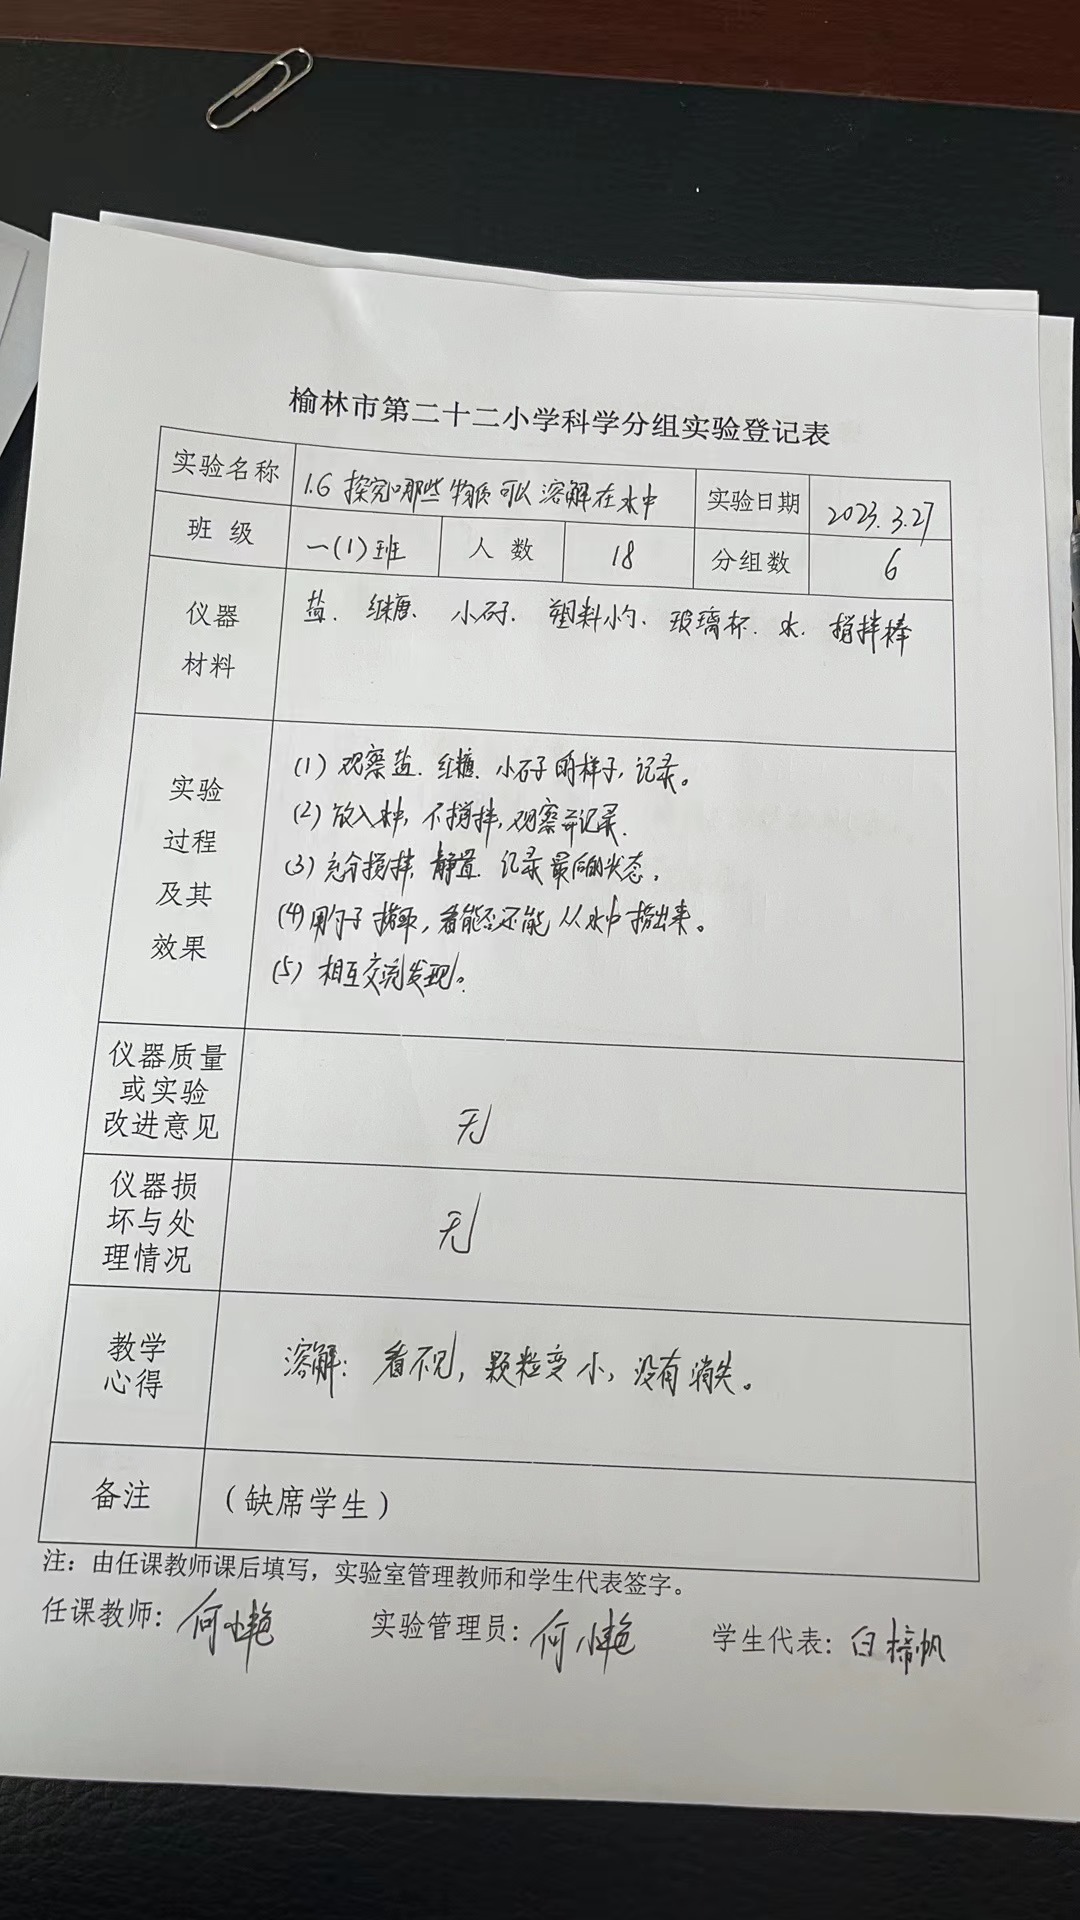 榆林市第二十二小学科学分组实验登记表
实验名称 1.6 探究哪些物质可以溶解在水中 实验日期 2023.3.27
班 级 一(1)班 人 数 18 分组数 6
仪器 盐、红糖、小石子、塑料小勺、玻璃杯、水、搅拌棒
材料
(1) 观察盐、红糖、小石子的样子,记录。
实验
(2) 放入水中,不搅拌,观察并记录.
过程
(3) 充分搅拌,静置、记录最后的状态。
及其
(4) 用勺子捞取,看能否还能从水中捞出来。
效果
(5) 相互交流发现。
仪器质量
或实验
改进意见 无
仪器损
坏与处 无
理情况
教学 溶解:看不见,颗粒变小,没有消失。
心得
备注 (缺席学生)
注:由任课教师课后填写,实验室管理教师和学生代表签字。
任课教师:何小艳 实验管理员:何小艳 学生代表:白 帆